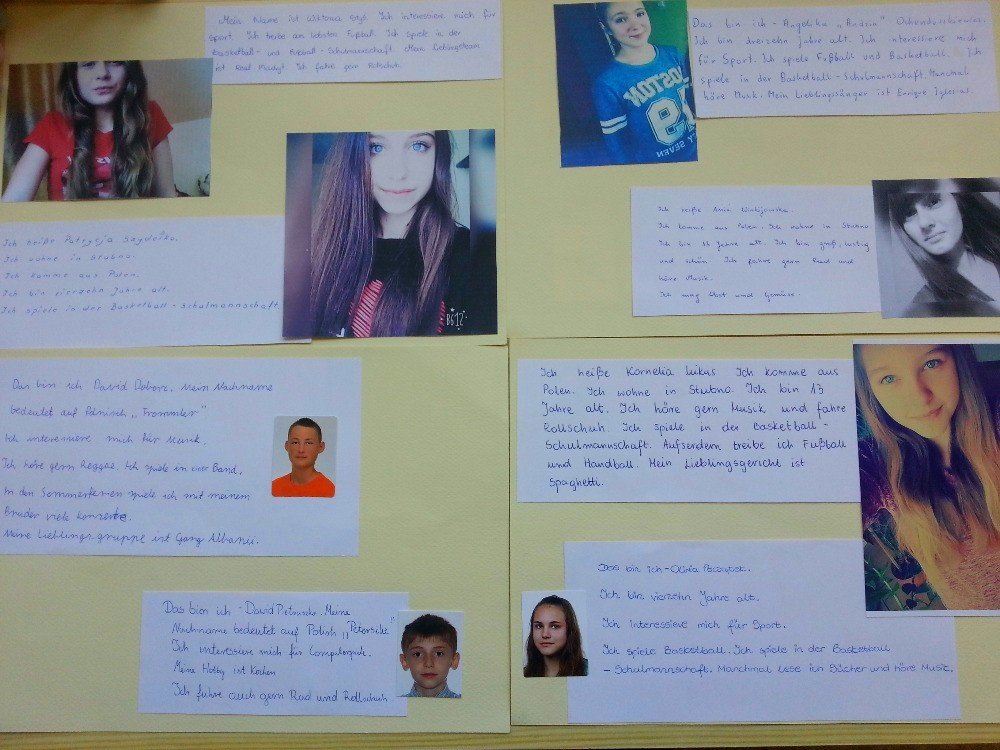 Mein Name ist Wiktoria Gryś. Ich interessiere mich für
Sport. Ich treibe am liebsten Fußball. Ich spiele in der
Basketball- und Fußball-Schulmannschaft. Mein Lieblingsteam
ist Real Madryt. Ich fahre gern Rollschuh.
Das bin ich - Angelika "Andzia"
Ich bin dreizehn Jahre alt. Ich interessiere mich
für Sport. Ich spiele Fußball und Basketball. Ich
spiele in der Basketball-Schulmannschaft. Manchmal
höre Musik. Mein Lieblingssänger ist Enrique Iglesias.
BOSTON
SEVEN
Ich heiße Patrycja Szydełko.
Ich wohne in Stubno.
Ich komme aus Polen.
Ich bin vierzehn Jahre alt.
Ich spiele in der Basketball-Schulmannschaft.
B612
Ich heiße Ania
Ich komme aus Polen. Ich wohne in Stubno
Ich bin Jahre alt. Ich bin groß, lustig
und schön. Ich fahre gern Rad und
höre Musik.
Ich mag Obst und Gemüse.
Das bin ich David Dobosz. Mein Nachname
bedeutet auf Polnisch „Trommler"
Ich interessiere mich für Musik.
Ich höre gern Reggae. Ich spiele in einer Band.
In den Sommerferien spiele ich mit meinem
Bruder viele Konzerte.
Meine Lieblingsgruppe ist Gang Albanii.
Ich heiße Kornelia Lukas. Ich komme aus
Polen. Ich wohne in Stubno. Ich bin 13
Jahre alt. Ich höre gern Musik und fahre
Rollschuh. Ich spiele in der Basketball-
Schulmannschaft. Außerdem treibe ich Fußball
und Handball. Mein Lieblingsgericht ist
Spaghetti.
Das bin ich - David Pietruszka. Meine
Nachname bedeutet auf Polish „Petersilie"
Ich interessiere mich für
Meine Hobby ist Kochen
Ich fahre auch gern Rad und Rollschuh
Das bin ich - Oliwia
Ich bin vierzehn Jahre alt.
Ich interessiere mich für Sport.
Ich spiele Basketball. Ich spiele in der Basketball
- Schulmannschaft. Manchmal lese ich Bücher und höre Music.